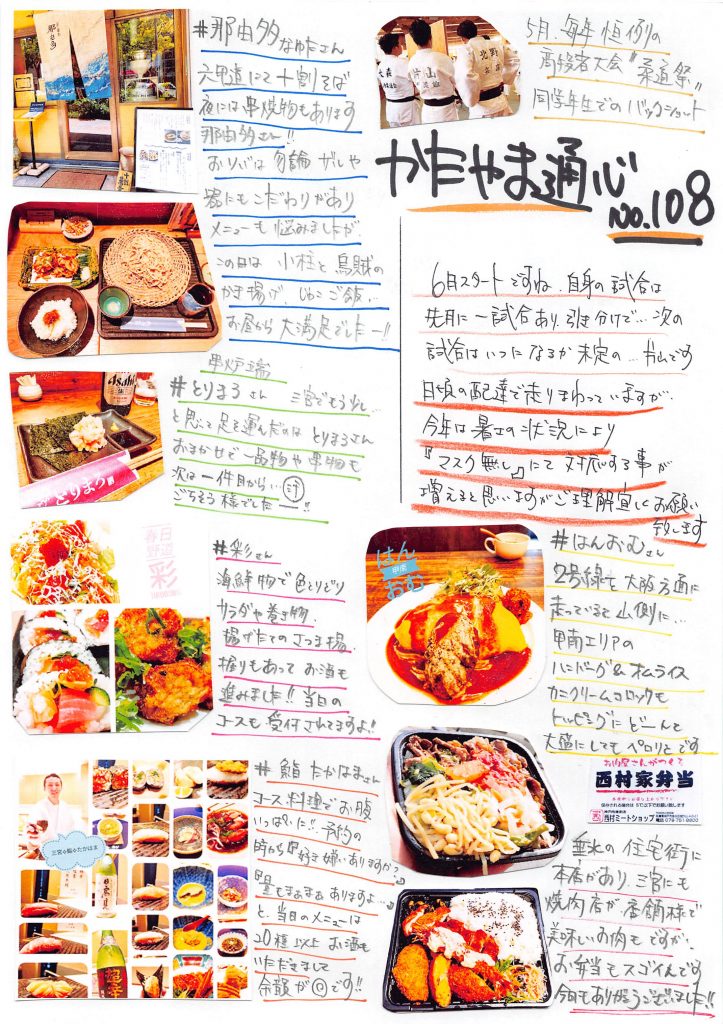 5月、毎年恒例の
高段者大会"柔道祭"
同学年生でのバックショット
かたやま通心
No.108
6月スタートですね、自身の試合は
先月に一試合あり、引き分けで…次の
試合はいつになるか未定の…片山です
日頃の配達で走りまわっていますが、
今年は暑さの状況により
『マスク無し』にて対応する事が
増えると思いますがご理解宜しくお願い
致します
#那由多 なゆたさん
六甲道にて十割そば
夜には串焼物もあります
那由多さん!!
おりょうりは勿論 だしや
器にもこだわりがあり
メニューも悩みましたが
この日は 小柱と烏賊の
かき揚げ、いくご飯…
お昼から大満足でしたー!!
串炉端
#とりまるさん 三宮でもう少し…
と思って足を運んだのはとりまるさん
おまかせで一品物や串物も
次は一件目から…
ごちそう様でしたー!!
Asahi
とりまる
春日野道
彩
#彩さん
海鮮物で色とりどり
サラダや巻き物
揚げたてのさつま揚
握りもあってお酒も
進みました!!当日の
コースも受付されてますよ!!
はん
おむ
甲南
#はんおむさん
2号線を大阪方面に
走っていると山側に…
甲南エリアの
ハンバーグ&オムライス
カニクリームコロッケも
トッピングにどーんと
大盛にしてもペロリとです
#鮨 たかはまさん
コース料理でお腹
いっぱいに!!予約の
時から『好き嫌いありますか?』
『量もまぁまぁありますよ…』
と、当日のメニューは
20種以上 お酒も
いただきまして
余韻が◎です!!
三宮の鮨のたかはま
お肉屋さんがつくる
西村家弁当
西村ミートショップ
無水の住宅街に
本店があり、三宮にも
焼肉店が店舗様で
美味しいお肉もですが、
お弁当もスゴイんです
今月もありがとうございました!!